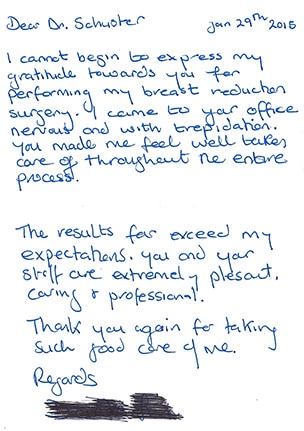 Dear Dr. Schuster
Jan 29th 2015
I cannot begin to express my
gratitude towards you for
performing my breast reduction
surgery. I came to your office
nervous and with trepidation.
You made me feel well taken
care of throughout the entire
process.
The results far exceed my
expectations. You and your
staff are extremely plesant,
caring & professional.
Thank you again for taking
such good care of me.
Regards